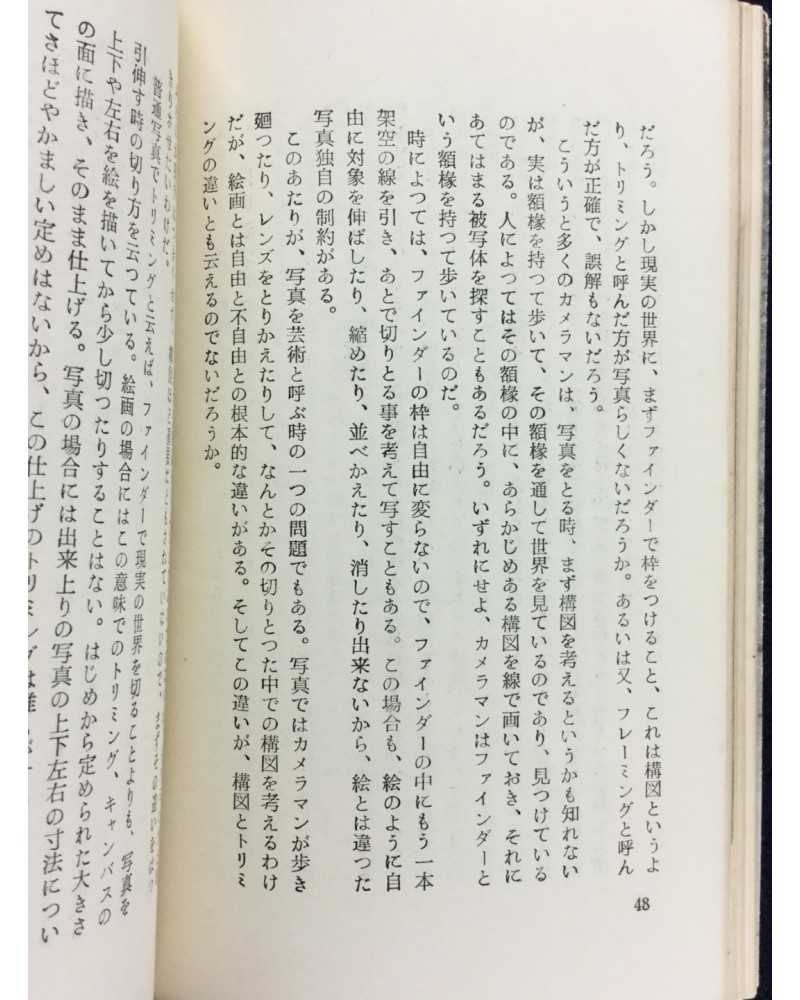 だろう。しかし現実の世界に、まずファインダーで枠をつけること、これは構図というよ
り、トリミングと呼んだ方が写真らしくないだろうか。あるいは又、フレーミングと呼ん
だ方が正確で、誤解もないだろう。
こういうと多くのカメラマンは、写真をとる時、まず構図を考えるというかも知れない
が、実は額椽を持つて歩いて、その額椽を通して世界を見ているのであり、見つけている
のである。人によつてはその額椽の中に、あらかじめある構図を線で画いておき、それに
あてはまる被写体を探すこともあるだろう。いずれにせよ、カメラマンはファインダーと
いう額椽を持つて歩いているのだ。
時によつては、ファインダーの枠は自由に変らないので、ファインダーの中にもう一本
架空の線を引き、あとで切りとる事を考えて写すこともある。この場合も、絵のように自
由に対象を伸ばしたり、縮めたり、並べかえたり、消したり出来ないから、絵とは違つた
写真独自の制約がある。
このあたりが、写真を芸術と呼ぶ時の一つの問題でもある。写真ではカメラマンが歩き
廻つたり、レンズをとりかえたりして、なんとかその切りとつた中での構図を考えるわけ
だが、絵画とは自由と不自由との根本的な違いがある。そしてこの違いが、構図とトリミ
ングの違いとも云えるのでないだろうか。
48
普通写真でトリミングと云えば、ファインダーで現実の世界を切ることよりも、写真を
引伸す時の切り方を云つている。絵画の場合にはこの意味でのトリミング、キャンバスの
上下や左右を絵を描いてから少し切つたりすることはない。はじめから定められた大きさ
の面に描き、そのまま仕上げる。写真の場合には出来上りの写真の上下左右の寸法につい
てさほどやかましい定めはないから、この仕上げのトリミングは